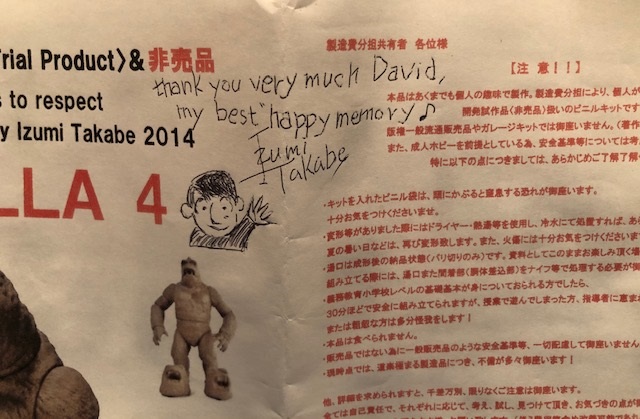 Trial Product〉&非売品
s to respect
y Izumi Takabe 2014
LLA 4
thank you very much David,
my best "happy memory♪
Izumi
Takabe
製造費分担共有者 各位様
【注 意！！】
本品はあくまでも個人の趣味で製作。製造費分担により、個人が
開発試作品〈非売品〉扱いのビニールキットです
版権一般流通販売品やガレージキットでは御座いません。（著作
また、成人ホビーを前提としている為、安全基準等については考
特に以下の点につきましては、あらかじめご了解了解
・キットを入れたビニル袋は、頭にかぶると窒息する恐れが御座います。
十分お気をつけくださいませ。
・変形等がありました際にはドライヤー・熱湯等を使用し、冷水にて処置すれば、あ
夏の暑い日などは、再び変形致します。また、火傷には十分お気をつけください
・湯口は成形後の納品状態（バリ切りのみ）です。資料としてこのままお楽しみ頂く場
組み立てる際には、湯口また間着部（胴体差込部）をナイフ等で処理する必要が
・義務教育小学校レベルの基礎基本が身についておられる方でしたら、
30分ほどで安全に組み立てられますが、授業で遊んでしまった方、指導者に恵ま
または粗忽な方は多分怪我をします！
・本品は食べられません。
・販売品ではない為に一般販売品のような安全基準等、一切配慮して御座いません
・現時点では、道楽極まる製造品につき、不備が多々御座います！
他、詳細を求められますと、千差万別、限りなくご注意は御座います。
全ては自己責任で、それぞれに応じて、考え、試し、見つけて頂き、お気づきの点が